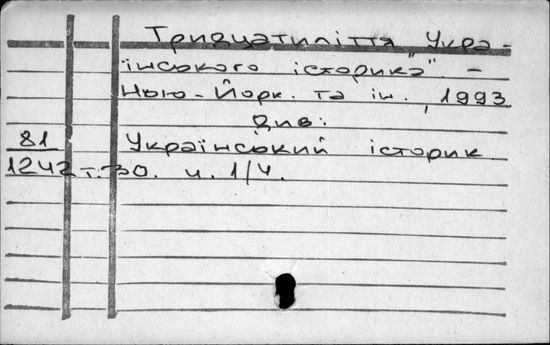 Тридцатиліття „Укра-
їнського історика". –
Нью-Йорк. та ін., 1993
Див:
81 Український історик
1242 т. 30. ч. 1/4.